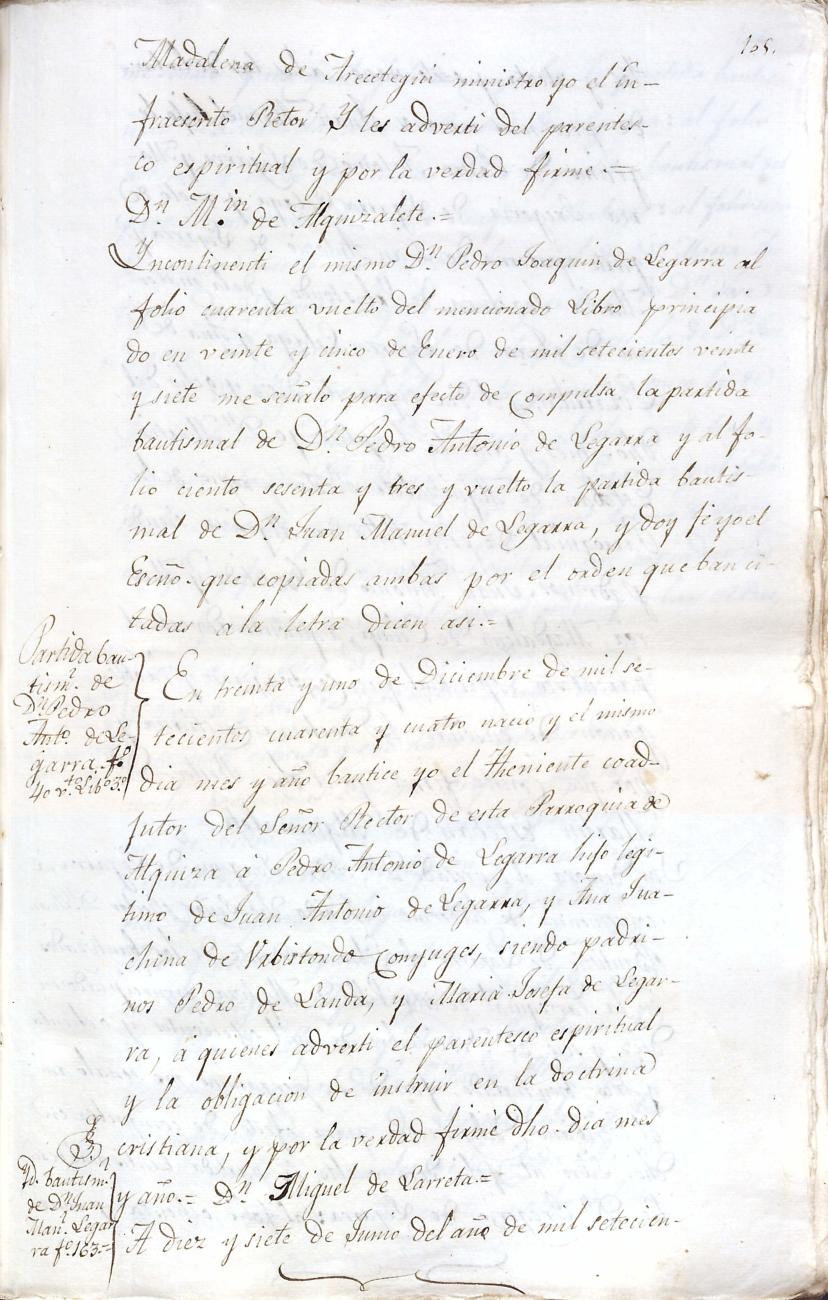 105.
Madalena de Arecetegui ministro yo el in-
fraescrito Retor Y les adverti del parentes-
co espiritual y por la verdad firme.=
Dn. Min. de Alquizalete.=
Yncontinenti el mismo Dn. Pedro Joaquin de Legarra al
folio cuarenta vuelto del mencionado Libro principia
do en veinte y cinco de Enero de mil setecientos veinte
y siete me señalo para efecto de compulsa la partida
bautismal de Dn. Pedro Antonio de Legarra y al fo-
lio ciento sesenta y tres y vuelto la partida bautis-
mal de Dn. Juan Manuel de Legarra, y doy fe yo el
Escño. que copiadas ambas por el orden que ban ci-
tadas á la letra dicen asi.=
Partida bau-
tism. de
Dn. Pedro
Anto. de Le-
garra, fo.
40 vto. Libo. 3o.
En treinta y uno de Diciembre de mil se-
tecientos cuarenta y cuatro nacio y el mismo
dia mes y año bautice yo el theniente coad-
jutor del Señor Rector de esta Parroquia de
Alquiza á Pedro Antonio de Legarra hijo legi-
timo de Juan Antonio de Legarra, y Ana Jua-
china de Vrbiztondo Conjuges, siendo padri-
nos Pedro de Landa, y Maria Josefa de Legar-
ra, á quienes adverti el parentesco espiritual
y la obligacion de instruir en la doctrina
cristiana, y por la verdad firmé dho. dia mes
y año.= Dn. Miguel de Larreta.=
Yd. bautism.
de Dn. Juan
Manl. Legar
ra fo. 163.=
A diez y siete de Junio del año de mil setecien-